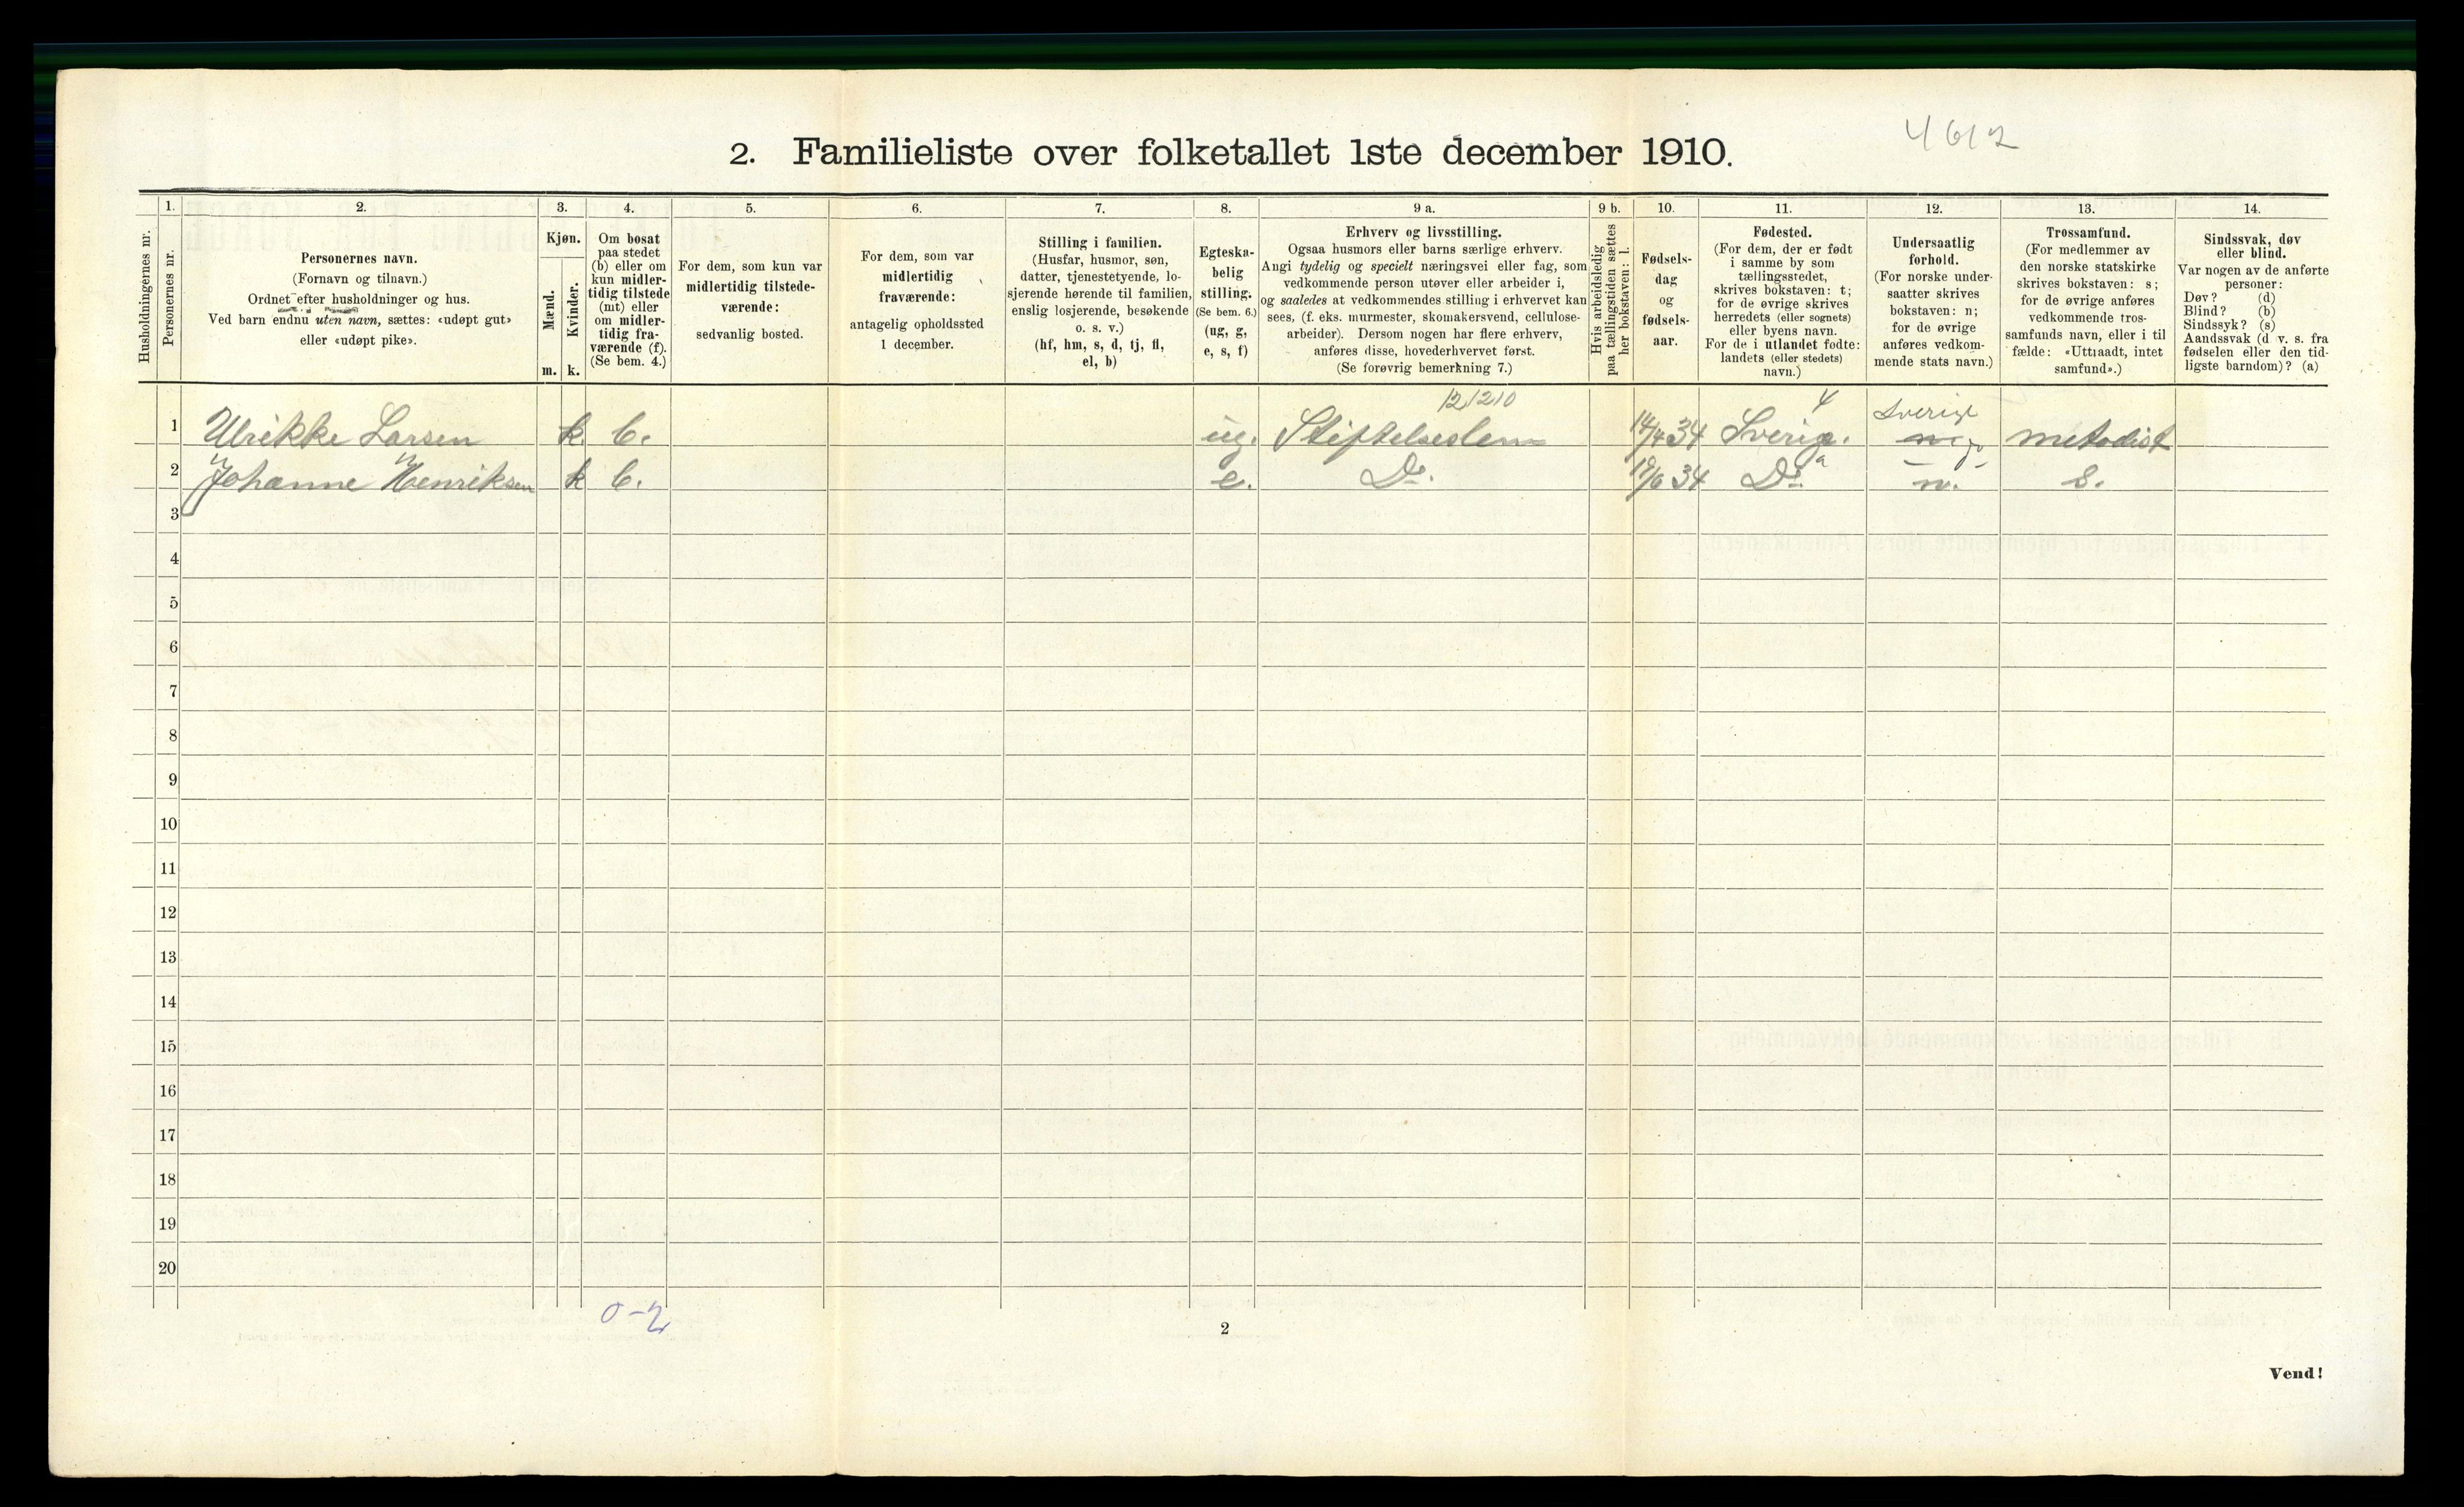 4612
2. Familieliste over folketallet 1ste december 1910.
Husholdningernes nr.
1.
Personernes nr.
2.
Personernes navn.
(Fornavn og tilnavn.)
Ordnet efter husholdninger og hus.
Ved barn endnu uten navn, sættes: «udøpt gut»
eller «udøpt pike».
3.
Kjøn.
Mænd.
m.
Kvinder.
k.
4.
Om bosat
paa stedet
(b) eller om
kun midler-
tidig tilstede
(mt) eller
om midler-
tidig fra-
værende (f).
(Se bem. 4.)
5.
For dem, som kun var
midlertidig tilstede-
værende:
sedvanlig bosted.
6.
For dem, som var
midlertidig
fraværende:
antagelig opholdssted
1 december.
7.
Stilling i familien.
(Husfar, husmor, søn,
datter, tjenestetyende, lo-
sjerende hørende til familien,
enslig losjerende, besøkende
o. s. v.)
(hf, hm, s, d, tj, fl,
el, b)
8.
Egteska-
belig
stilling.
(Se bem. 6.)
(ug, g,
e, s, f)
9 a.
Erhverv og livsstilling.
Ogsaa husmors eller barns særlige erhverv.
Angi tydelig og specielt næringsvei eller fag, som
vedkommende person utøver eller arbeider i,
og saaledes at vedkommendes stilling i erhvervet kan
sees, (f. eks. murmester, skomakersvend, cellulose-
arbeider). Dersom nogen har flere erhverv,
anføres disse, hovederhvervet først.
(Se forøvrig bemerkning 7.)
9 b.
Hvis arbeidsledig
paa tællingstiden sættes
her bokstaven: l.
10.
Fødsels-
dag
og
fødsels-
aar.
11.
Fødested.
(For dem, der er født
i samme by som
tællingsstedet,
skrives bokstaven: t;
for de øvrige skrives
herredets (eller sognets)
eller byens navn.
For de i utlandet fødte:
landets (eller stedets)
navn.)
12.
Undersaatlig
forhold.
(For norske under-
saatter skrives
bokstaven: n;
for de øvrige
anføres vedkom-
mende stats navn.)
13.
Trossamfund.
(For medlemmer av
den norske statskirke
skrives bokstaven: s;
for de øvrige anføres
vedkommende tros-
samfunds navn, eller i til
fælde: «Uttraadt, intet
samfund».)
14.
Sindssvak, døv
eller blind.
Var nogen av de anførte
personer:
Døv? (d)
Blind? (b)
Sindssyk? (s)
Aandssvak (d v. s. fra
fødselen eller den tid-
ligste barndom)? (a)
121210 4 Sverige
1 Ulrikke Larsen k b. ug. Stiftelseslem 14/4 34 Sverige. metodist
2 Johanne Henriksen k b. e. Do. 19/6 34 Do. n. s.
3
4
5
6
7
8
9
10
11
12
13
14
15
16
17
18
19
20
0-2
2
Vend!